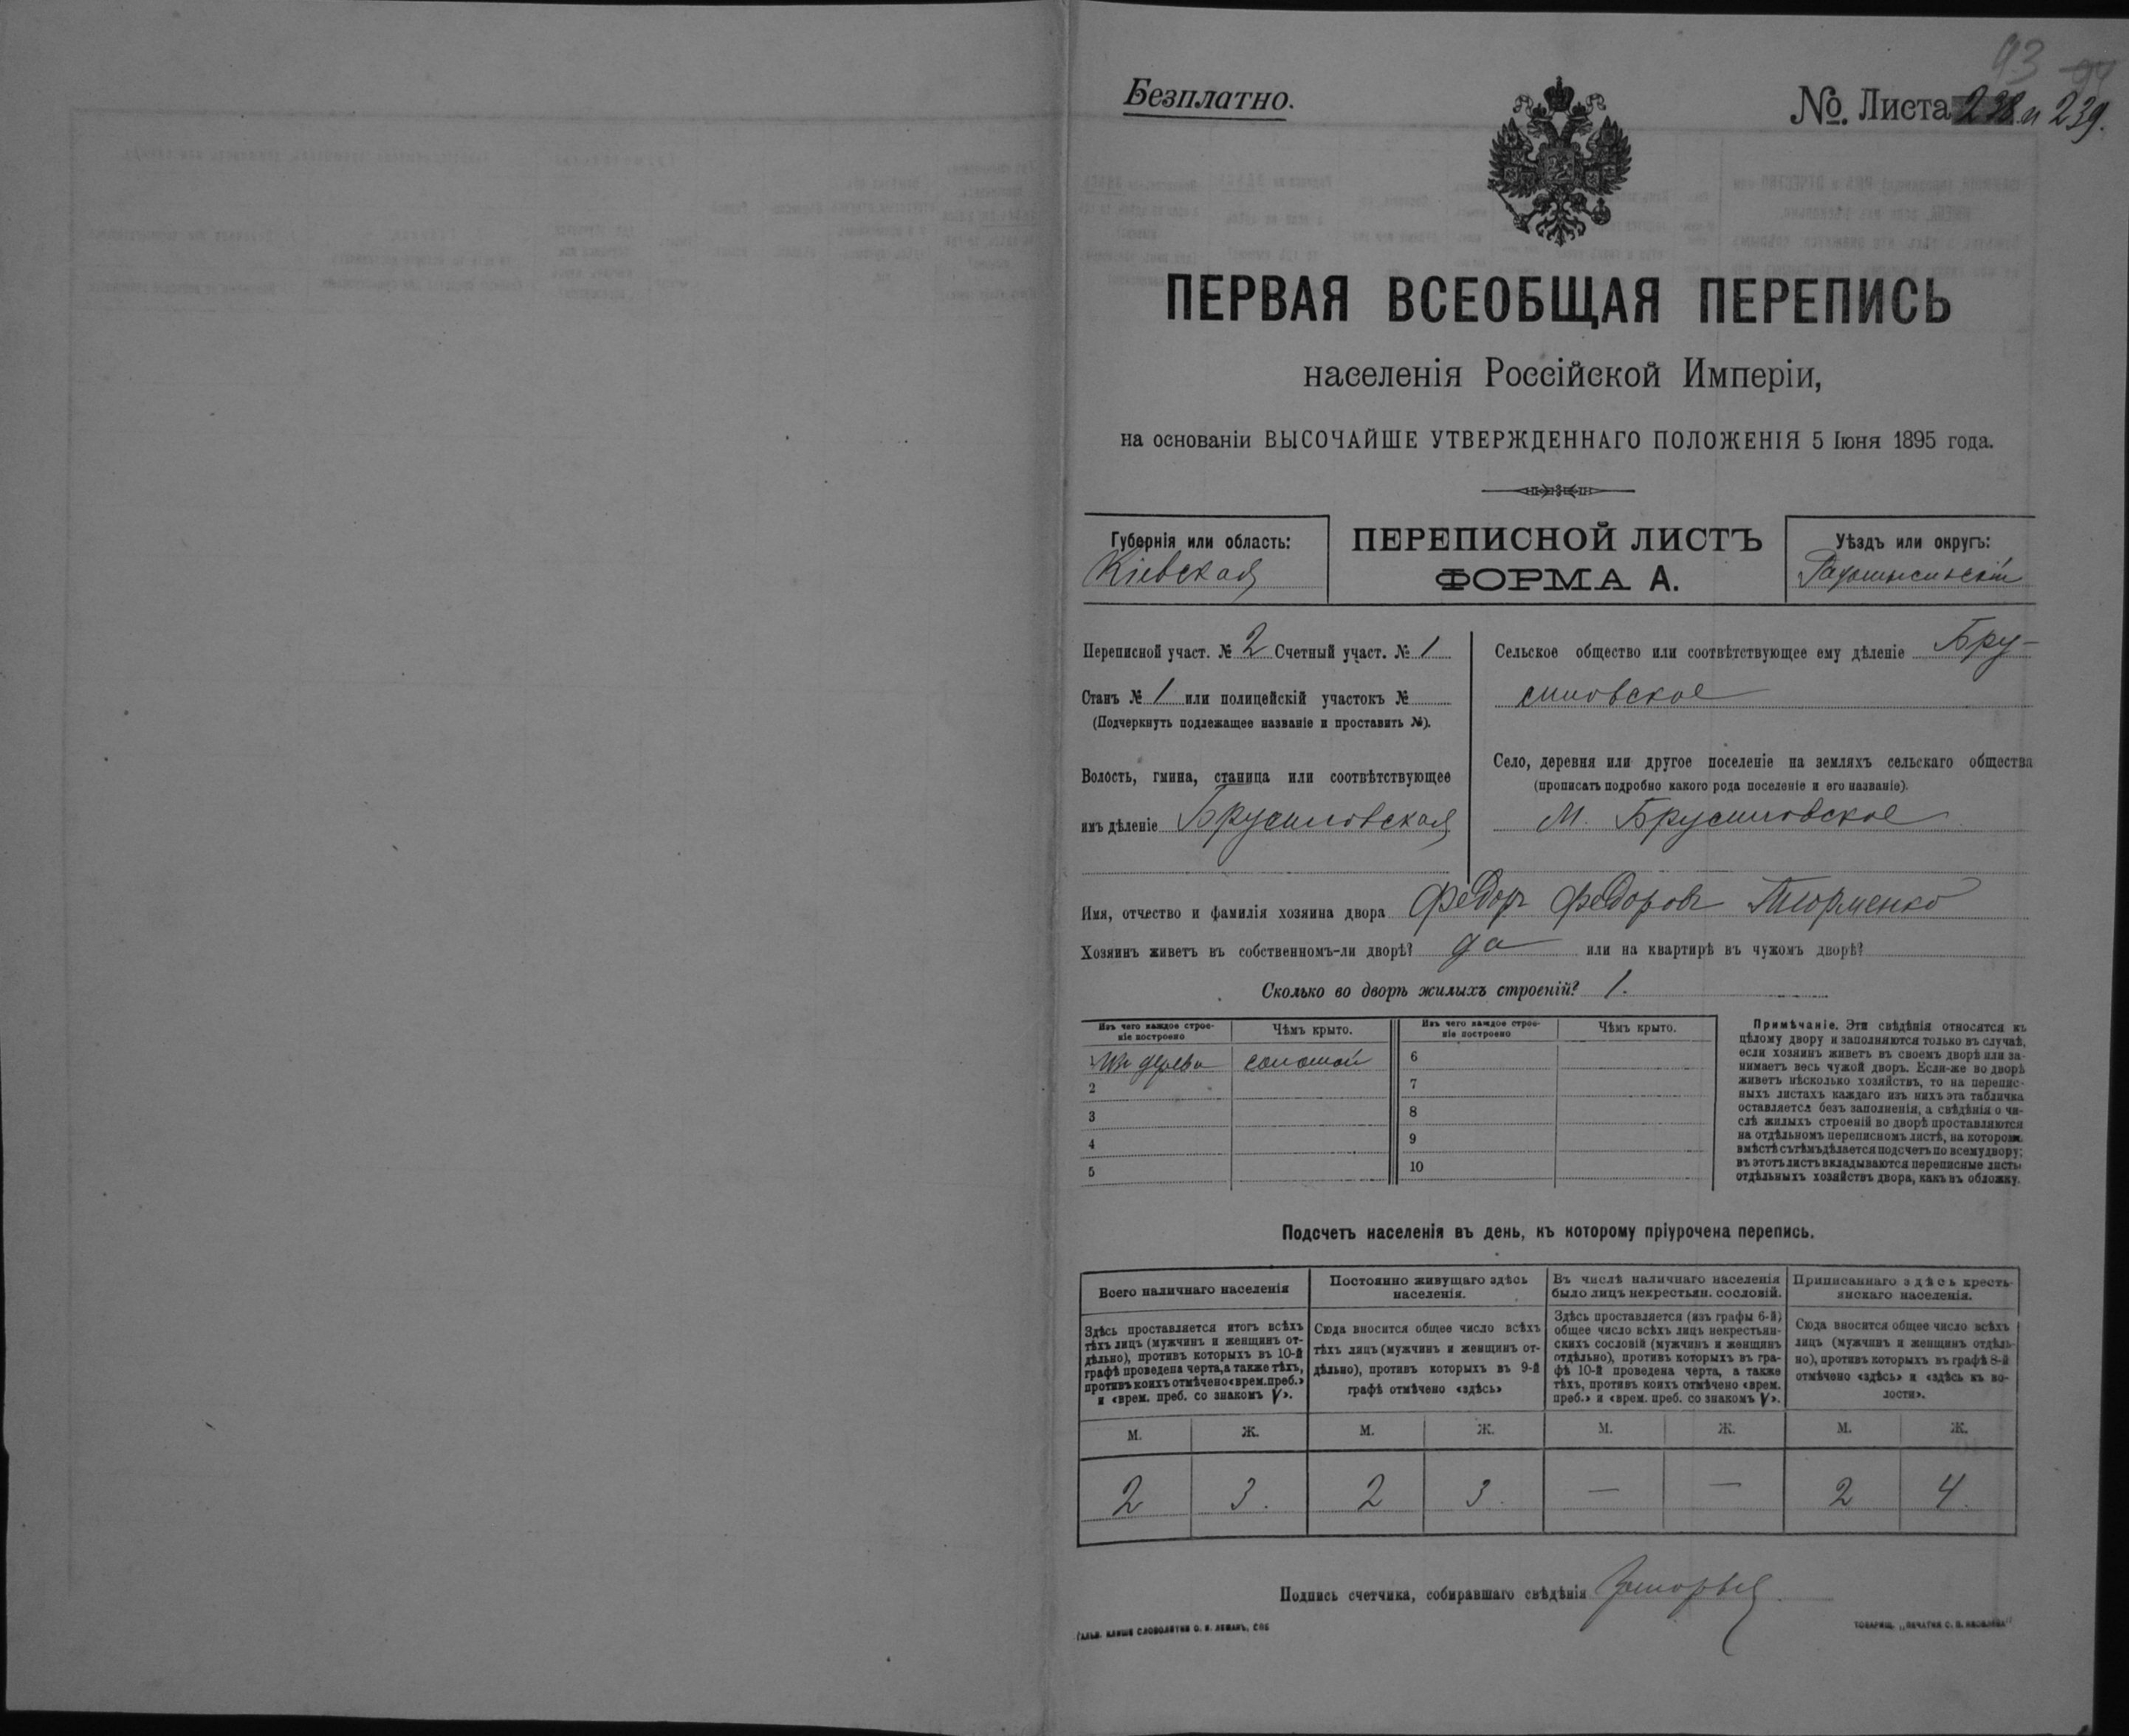 93 94
Безплатно.
№ Листа 238 и 239.
ПЕРВАЯ ВСЕОБЩАЯ ПЕРЕПИСЬ
населенія Россійской Имперіи,
на основаніи ВЫСОЧАЙШЕ УТВЕРЖДЕННАГО ПОЛОЖЕНІЯ 5 Іюня 1895 года.
Губернія или область:
Кіевская
ПЕРЕПИСНОЙ ЛИСТЪ
ФОРМА А.
Уѣздъ или округъ:
Радомысльскій
Переписной участ. № 2 Счетный участ. № 1
Станъ № 1 или полицейскій участокъ №
(Подчеркнуть подлежащее названіе и проставить №).
Волость, гмина, станица или соотвѣтствующее
имъ дѣленіе Брусиловская
Сельское общество или соотвѣтствующее ему дѣленіе Бру-
силовское
Село, деревня или другое поселеніе на земляхъ сельскаго общества
(прописать подробно какого рода поселеніе и его названіе).
М. Брусиловское
Имя, отчество и фамилія хозяина двора Федоръ Федоровъ Тюрменко
Хозяинъ живетъ въ собственномъ-ли дворѣ? да или на квартирѣ въ чужомъ дворѣ?
Сколько во дворѣ жилыхъ строеній? 1.
Изъ чего каждое строе-
ніе построено
Чѣмъ крыто.
Изъ чего каждое строе-
ніе построено
Чѣмъ крыто.
1 Изъ дерева соломой 6
2 7
3 8
4 9
5 10
Примѣчаніе. Эти свѣдѣнія относятся къ
цѣлому двору и заполняются только въ случаѣ,
если хозяинъ живетъ въ своемъ дворѣ или за-
нимаетъ весь чужой дворъ. Если-же во дворѣ
живетъ нѣсколько хозяйствъ, то на перепис-
ныхъ листахъ каждаго изъ нихъ эта табличка
оставляется безъ заполненія, а свѣдѣнія о чи-
слѣ жилыхъ строеній во дворѣ проставляются
на отдѣльномъ переписномъ листѣ, на которомъ
вмѣстѣ съ тѣмъ дѣлается подсчетъ по всему двору;
въ этотъ листъ вкладываются переписные листы
отдѣльныхъ хозяйствъ двора, какъ въ обложку.
Подсчетъ населенія въ день, къ которому пріурочена перепись.
Всего наличнаго населенія
Здѣсь проставляется итогъ всѣхъ
тѣхъ лицъ (мужчинъ и женщинъ от-
дѣльно), противъ которыхъ въ 10-й
графѣ проведена черта, а также тѣхъ,
противъ коихъ отмѣчено «врем. преб.»
и «врем. преб. со знакомъ V».
Постоянно живущаго здѣсь
населенія.
Сюда вносится общее число всѣхъ
тѣхъ лицъ (мужчинъ и женщинъ от-
дѣльно), противъ которыхъ въ 9-й
графѣ отмѣчено «здѣсь»
Въ числѣ наличнаго населенія
было лицъ некрестьян. сословій.
Здѣсь проставляется (изъ графы 6-й)
общее число всѣхъ лицъ некрестьян-
скихъ сословій (мужчинъ и женщинъ
отдѣльно), противъ которыхъ въ гра-
фѣ 10-й проведена черта, а также
тѣхъ, противъ коихъ отмѣчено «врем.
преб.» и «врем. преб. со знакомъ V».
Приписаннаго здѣсь кресть-
янскаго населенія.
Сюда вносится общее число всѣхъ
лицъ (мужчинъ и женщинъ отдѣль-
но), противъ которыхъ въ графѣ 8-й
отмѣчено «здѣсь» и «здѣсь къ во-
лости».
М. Ж. М. Ж. М. Ж. М. Ж.
2 3. 2 3. — — 2 4.
Подпись счетчика, собиравшаго свѣдѣнія
Гальв. клише словолитни О. И. Леманъ, СПБ
Товарищ. „Печатня С. П. Яковлева"